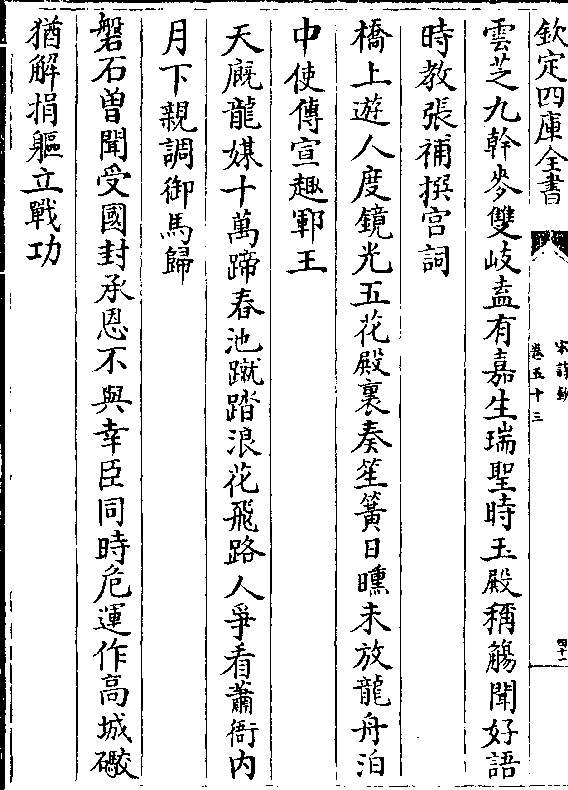 欽定四庫全書
宋詩鈔
卷五十三
四十二
雲芝九幹麥雙岐盍有嘉生瑞聖時玉殿稱觴聞好語
時教張補撰宮詞
橋上遊人度鏡光五花殿裏奏笙簧日曛未放龍舟泊
中使傳宣趣鄆王
天廐龍媒十萬蹄春池蹴踏浪花飛路人爭看蕭衙內
月下親調御馬歸
磐石曽聞受國封承恩不與幸臣同時危運作髙城礮
猶解捐軀立戰功